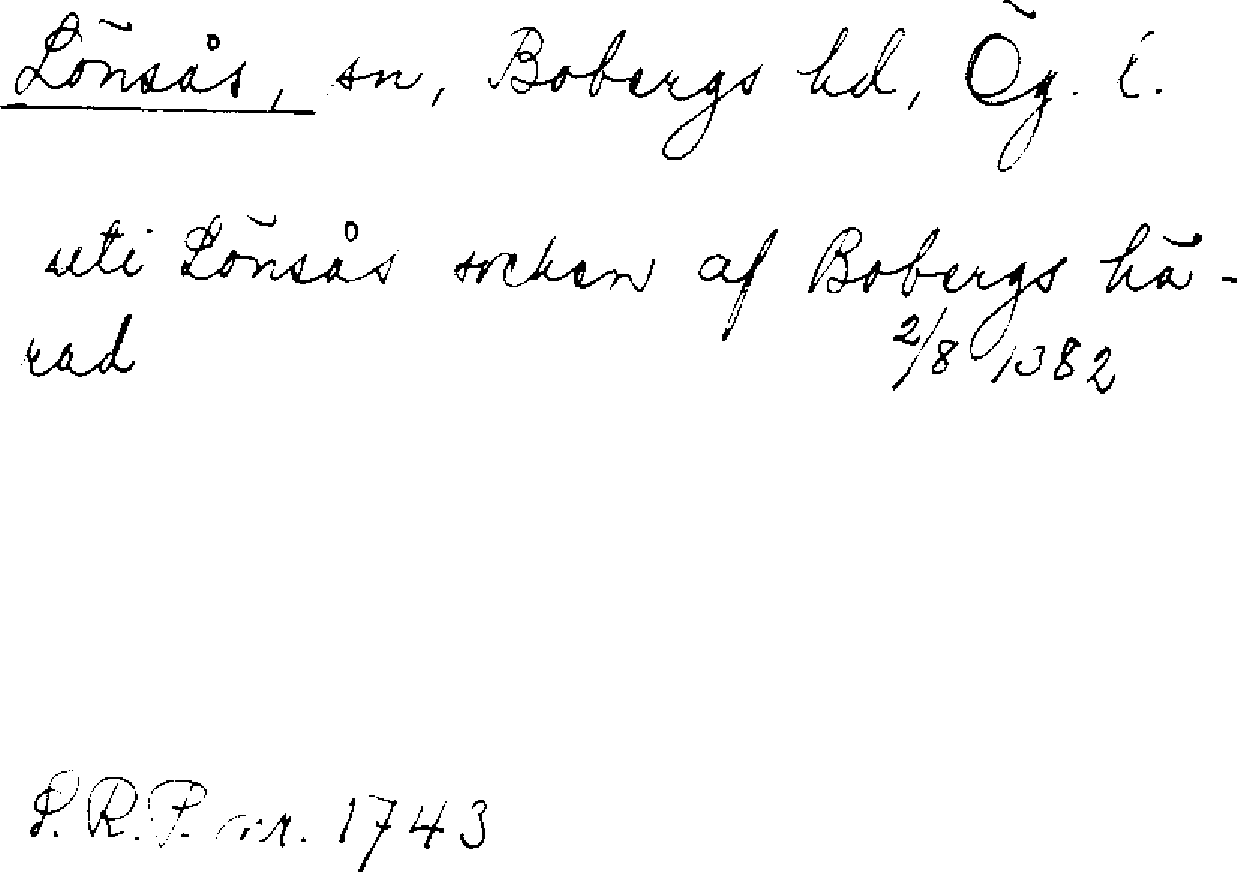 Lönsås, sn, Bobergs hd, Ög. l.
uti Lönsås socken af Bobergs hä-
rad 2/8 1382
S.R.P. nr. 1743